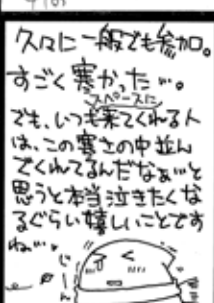 久々に一般でも参加。
すごく寒かった…。
スペースに
でも、いつも来てくれる人
は、この寒さの中並ん
でくれてるんだなぁ…と
思うと本当泣きたくな
るぐらい嬉しいことです
ね…。
じーん